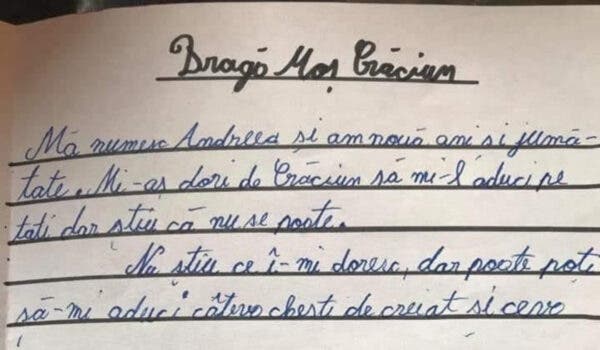 Dragă Moș Crăciun
Mă numesc Andreea și am nouă ani si jumă-
tate. Mi-aș dori de Crăciun să mi-l aduci pe
tati dar știu că nu se poate.
Nu știu ce î-mi doresc, dar poate poți
să-mi aduci câteva chesti de creiat si ceva